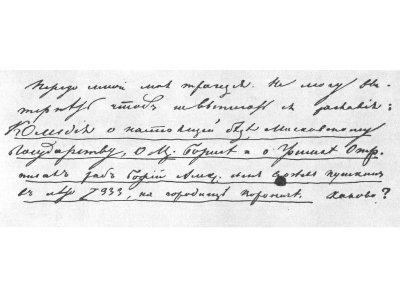 Передо мной моя трагедія. Не могу вы-
терпѣть чтобъ не выписать ея заглавія:
Комедія о настоящей бѣдѣ Московскому
Государству, о Ц. Борисѣ и о Гришкѣ Отр.
писалъ рабъ Божій Алекс. сынъ Сергѣевъ Пушкинъ
въ лѣто 7333, на городищѣ Вороничѣ. Каково?